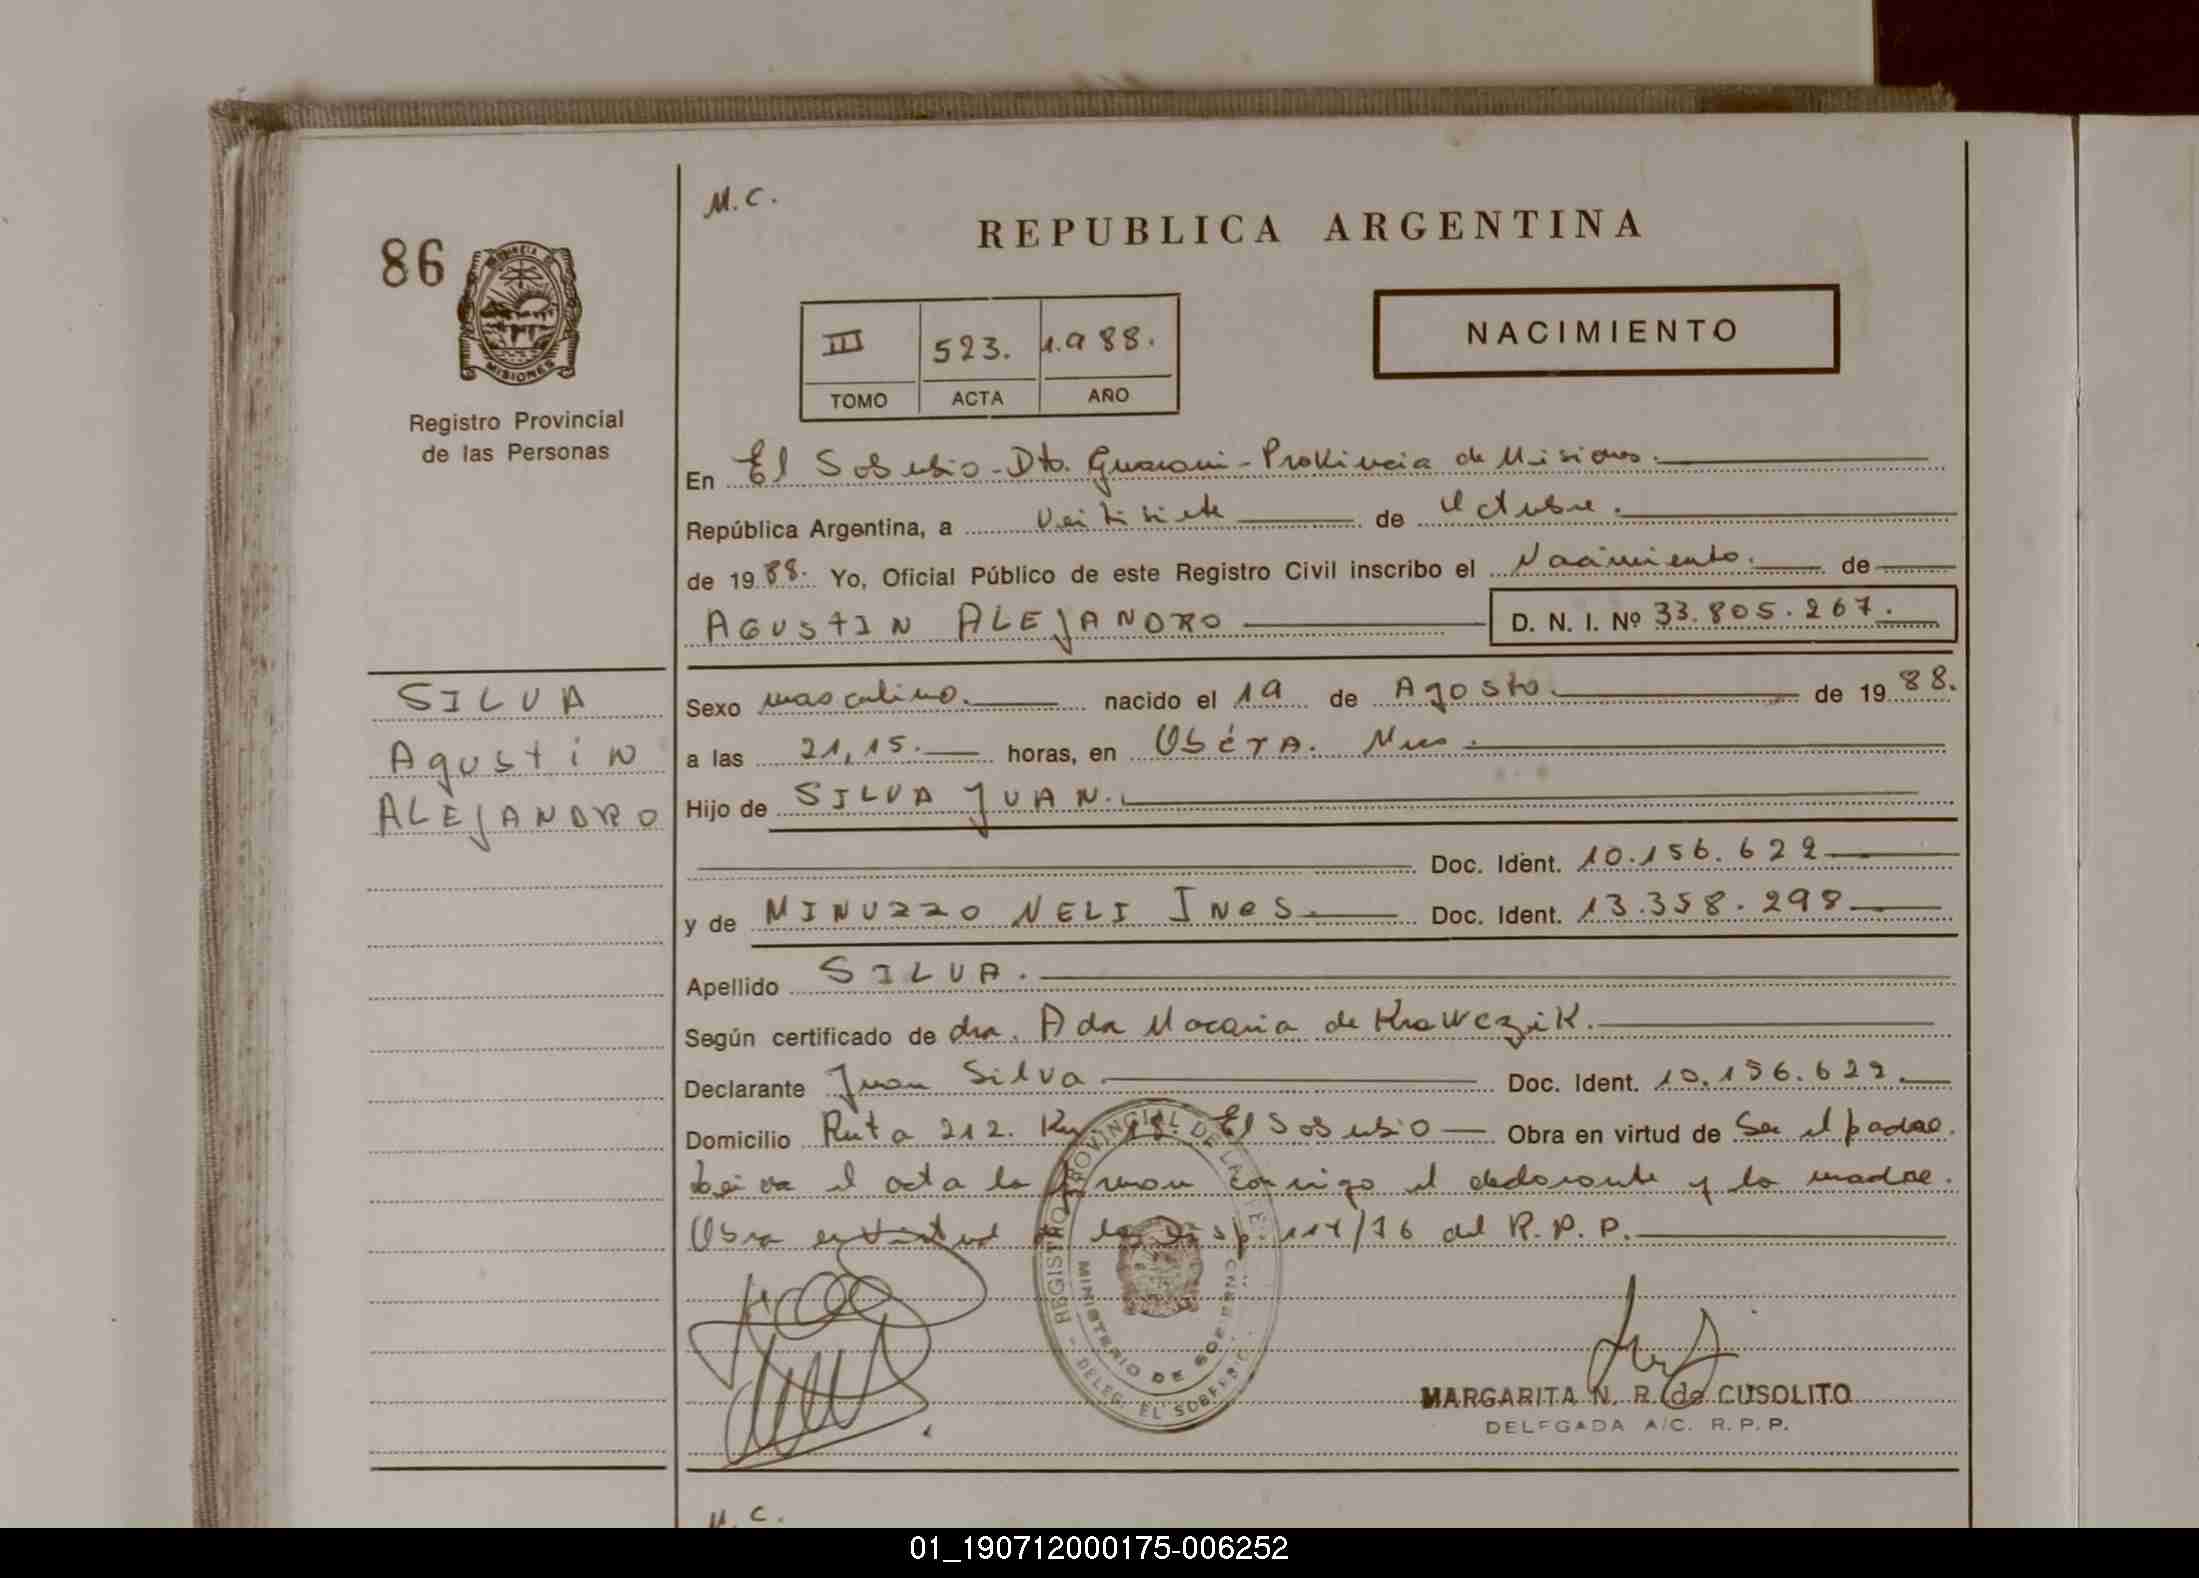 M.C.
REPUBLICA ARGENTINA
86
PROVINCIA DE
MISIONES
Registro Provincial
de las Personas
NACIMIENTO
III 523. 1.988.
TOMO ACTA AÑO
En El Soberbio - Dto. Guarani - Provincia de Misiones.
República Argentina, a Veitisiete de Octubre.
de 1988. Yo, Oficial Público de este Registro Civil inscribo el Nacimiento. de
AGUSTIN ALEJANDRO D. N. I. Nº 33.805.267.
SILVA
Agustin
ALEJANDRO
Sexo masculino. nacido el 19 de Agosto. de 1988.
a las 21,15. horas, en Oberá. Mnes.
Hijo de SILVA JUAN.
Doc. Ident. 10.156.622
y de MINUZZO NELI Ines. Doc. Ident. 13.358.298
Apellido SILVA.
Según certificado de dra. Ada Macaria de Krawczik.
Declarante Juan Silva Doc. Ident. 10.156.622.
Domicilio Ruta 212. Km 18 El Soberbio Obra en virtud de Ser el padre.
Leida el acta la firman conmigo el declarante y la madre.
Obra en virtud de la Disp. 114/76 del R.P.P.
REGISTRO PROVINCIAL DE LAS PE
MINISTERIO DE GOBIERNO
DELEG. EL SOBERBIO
MARGARITA N. R. de CUSOLITO
DELEGADA A/C. R.P.P.
M.C.
01_190712000175-006252